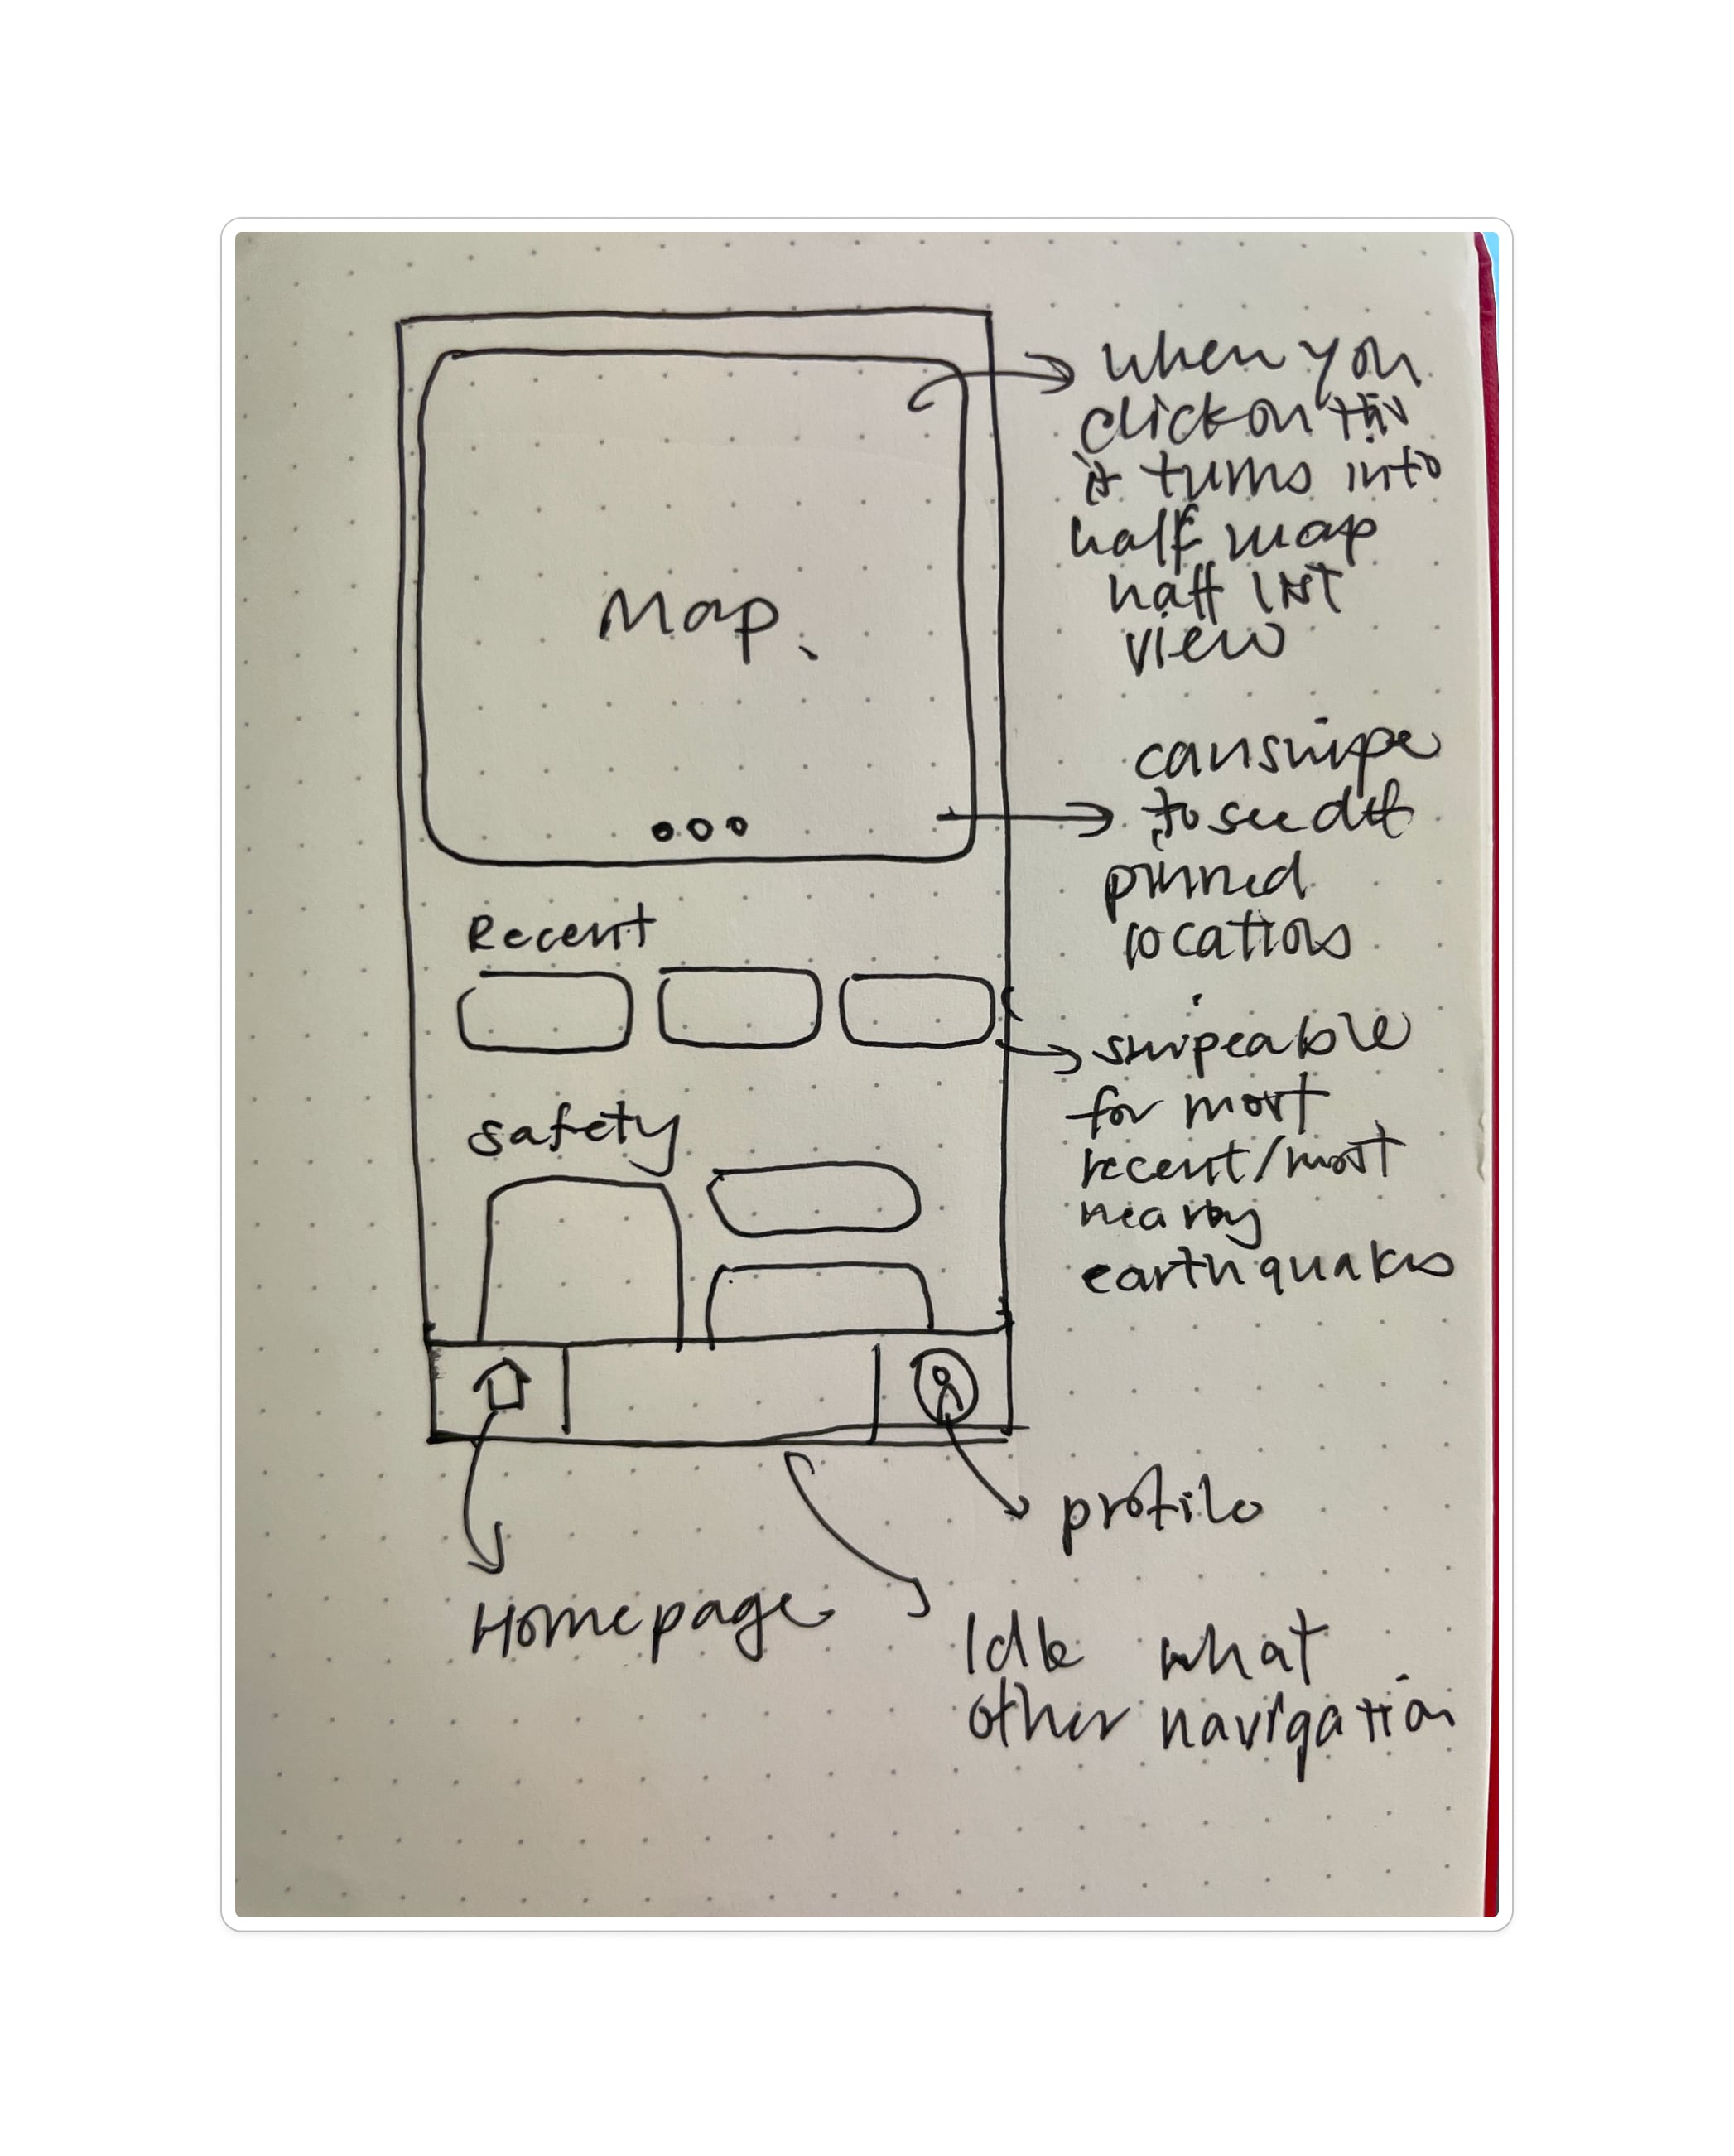 Map
Recent
safety
when you
click on this
it turns into
half map
half list
view
can swipe
to see diff
pinned
locations
swipeable
for most
recent/most
nearby
earthquakes
profile
Homepage
Idk what
other navigation